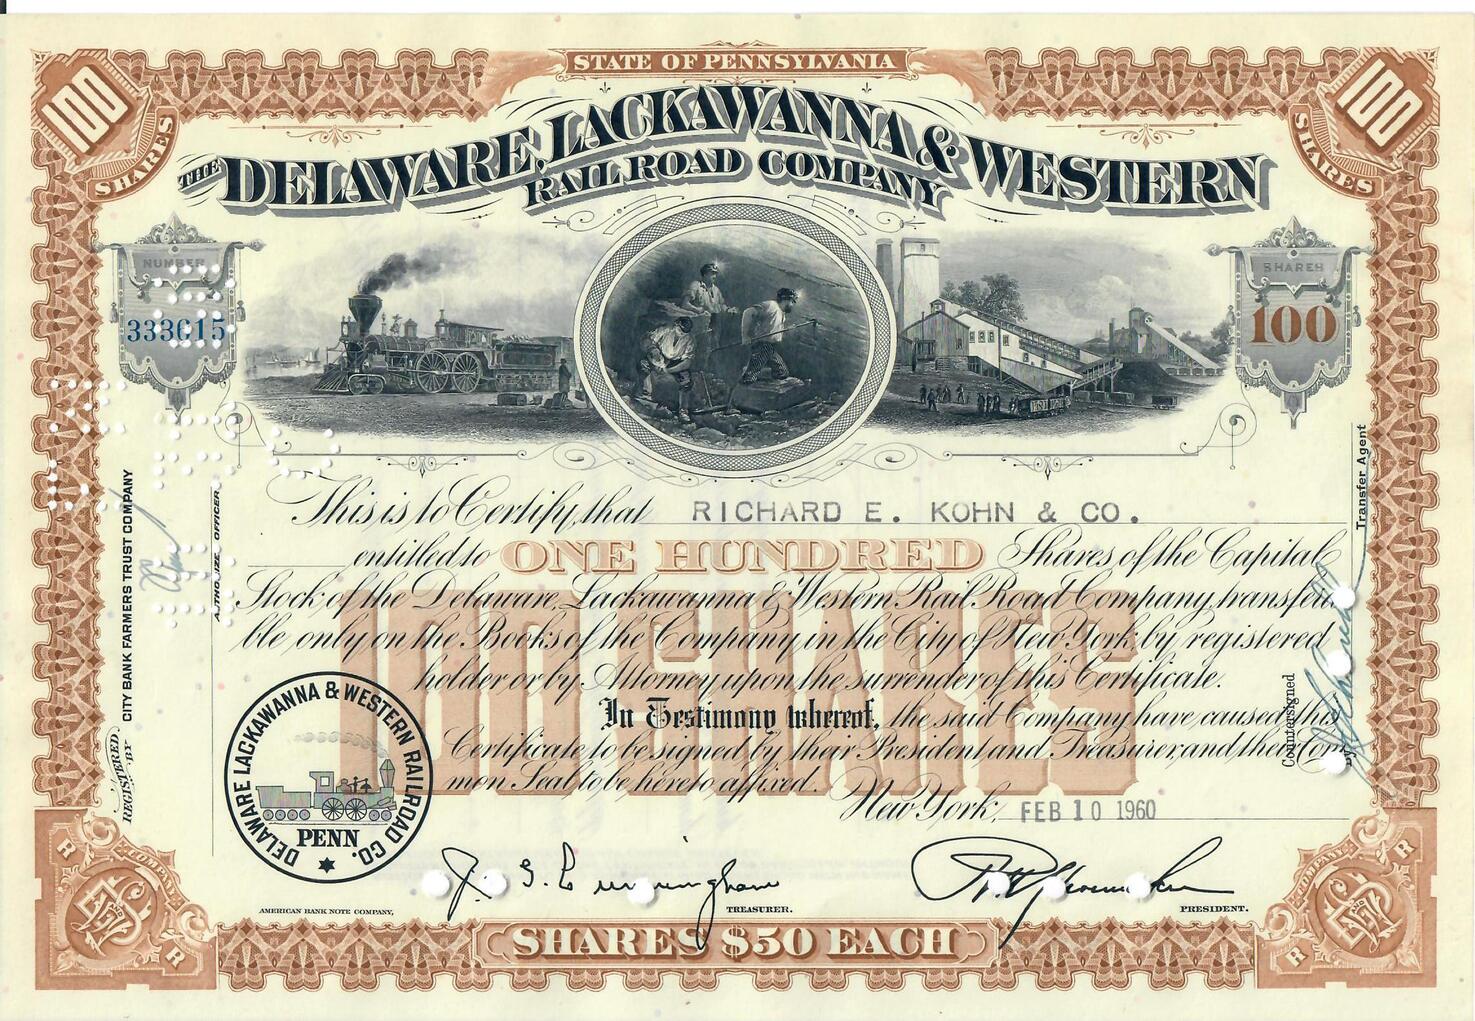 STATE OF PENNSYLVANIA
100 SHARES
100 SHARES
THE DELAWARE, LACKAWANNA & WESTERN
RAIL ROAD COMPANY
NUMBER
333615
SHARES
100
This is to Certify that RICHARD E. KOHN & CO.
entitled to ONE HUNDRED Shares of the Capital
Stock of the Delaware, Lackawanna & Western Rail Road Company, transfera
ble only on the Books of the Company in the City of New York, by registered
holder or by Attorney upon the surrender of this Certificate.
In Testimony whereof, the said Company have caused this
Certificate to be signed by their President and Treasurer, and their Com
mon Seal to be hereto affixed.
New York, FEB 10 1960
100 SHARES
REGISTERED BY CITY BANK FARMERS TRUST COMPANY
AUTHORIZED OFFICER
Countersigned
Transfer Agent
DELAWARE LACKAWANNA & WESTERN RAILROAD CO.
PENN.
AMERICAN BANK NOTE COMPANY.
TREASURER.
PRESIDENT.
SHARES $50 EACH
COMPANY
R
R
AND
COMPANY
R
R
AND